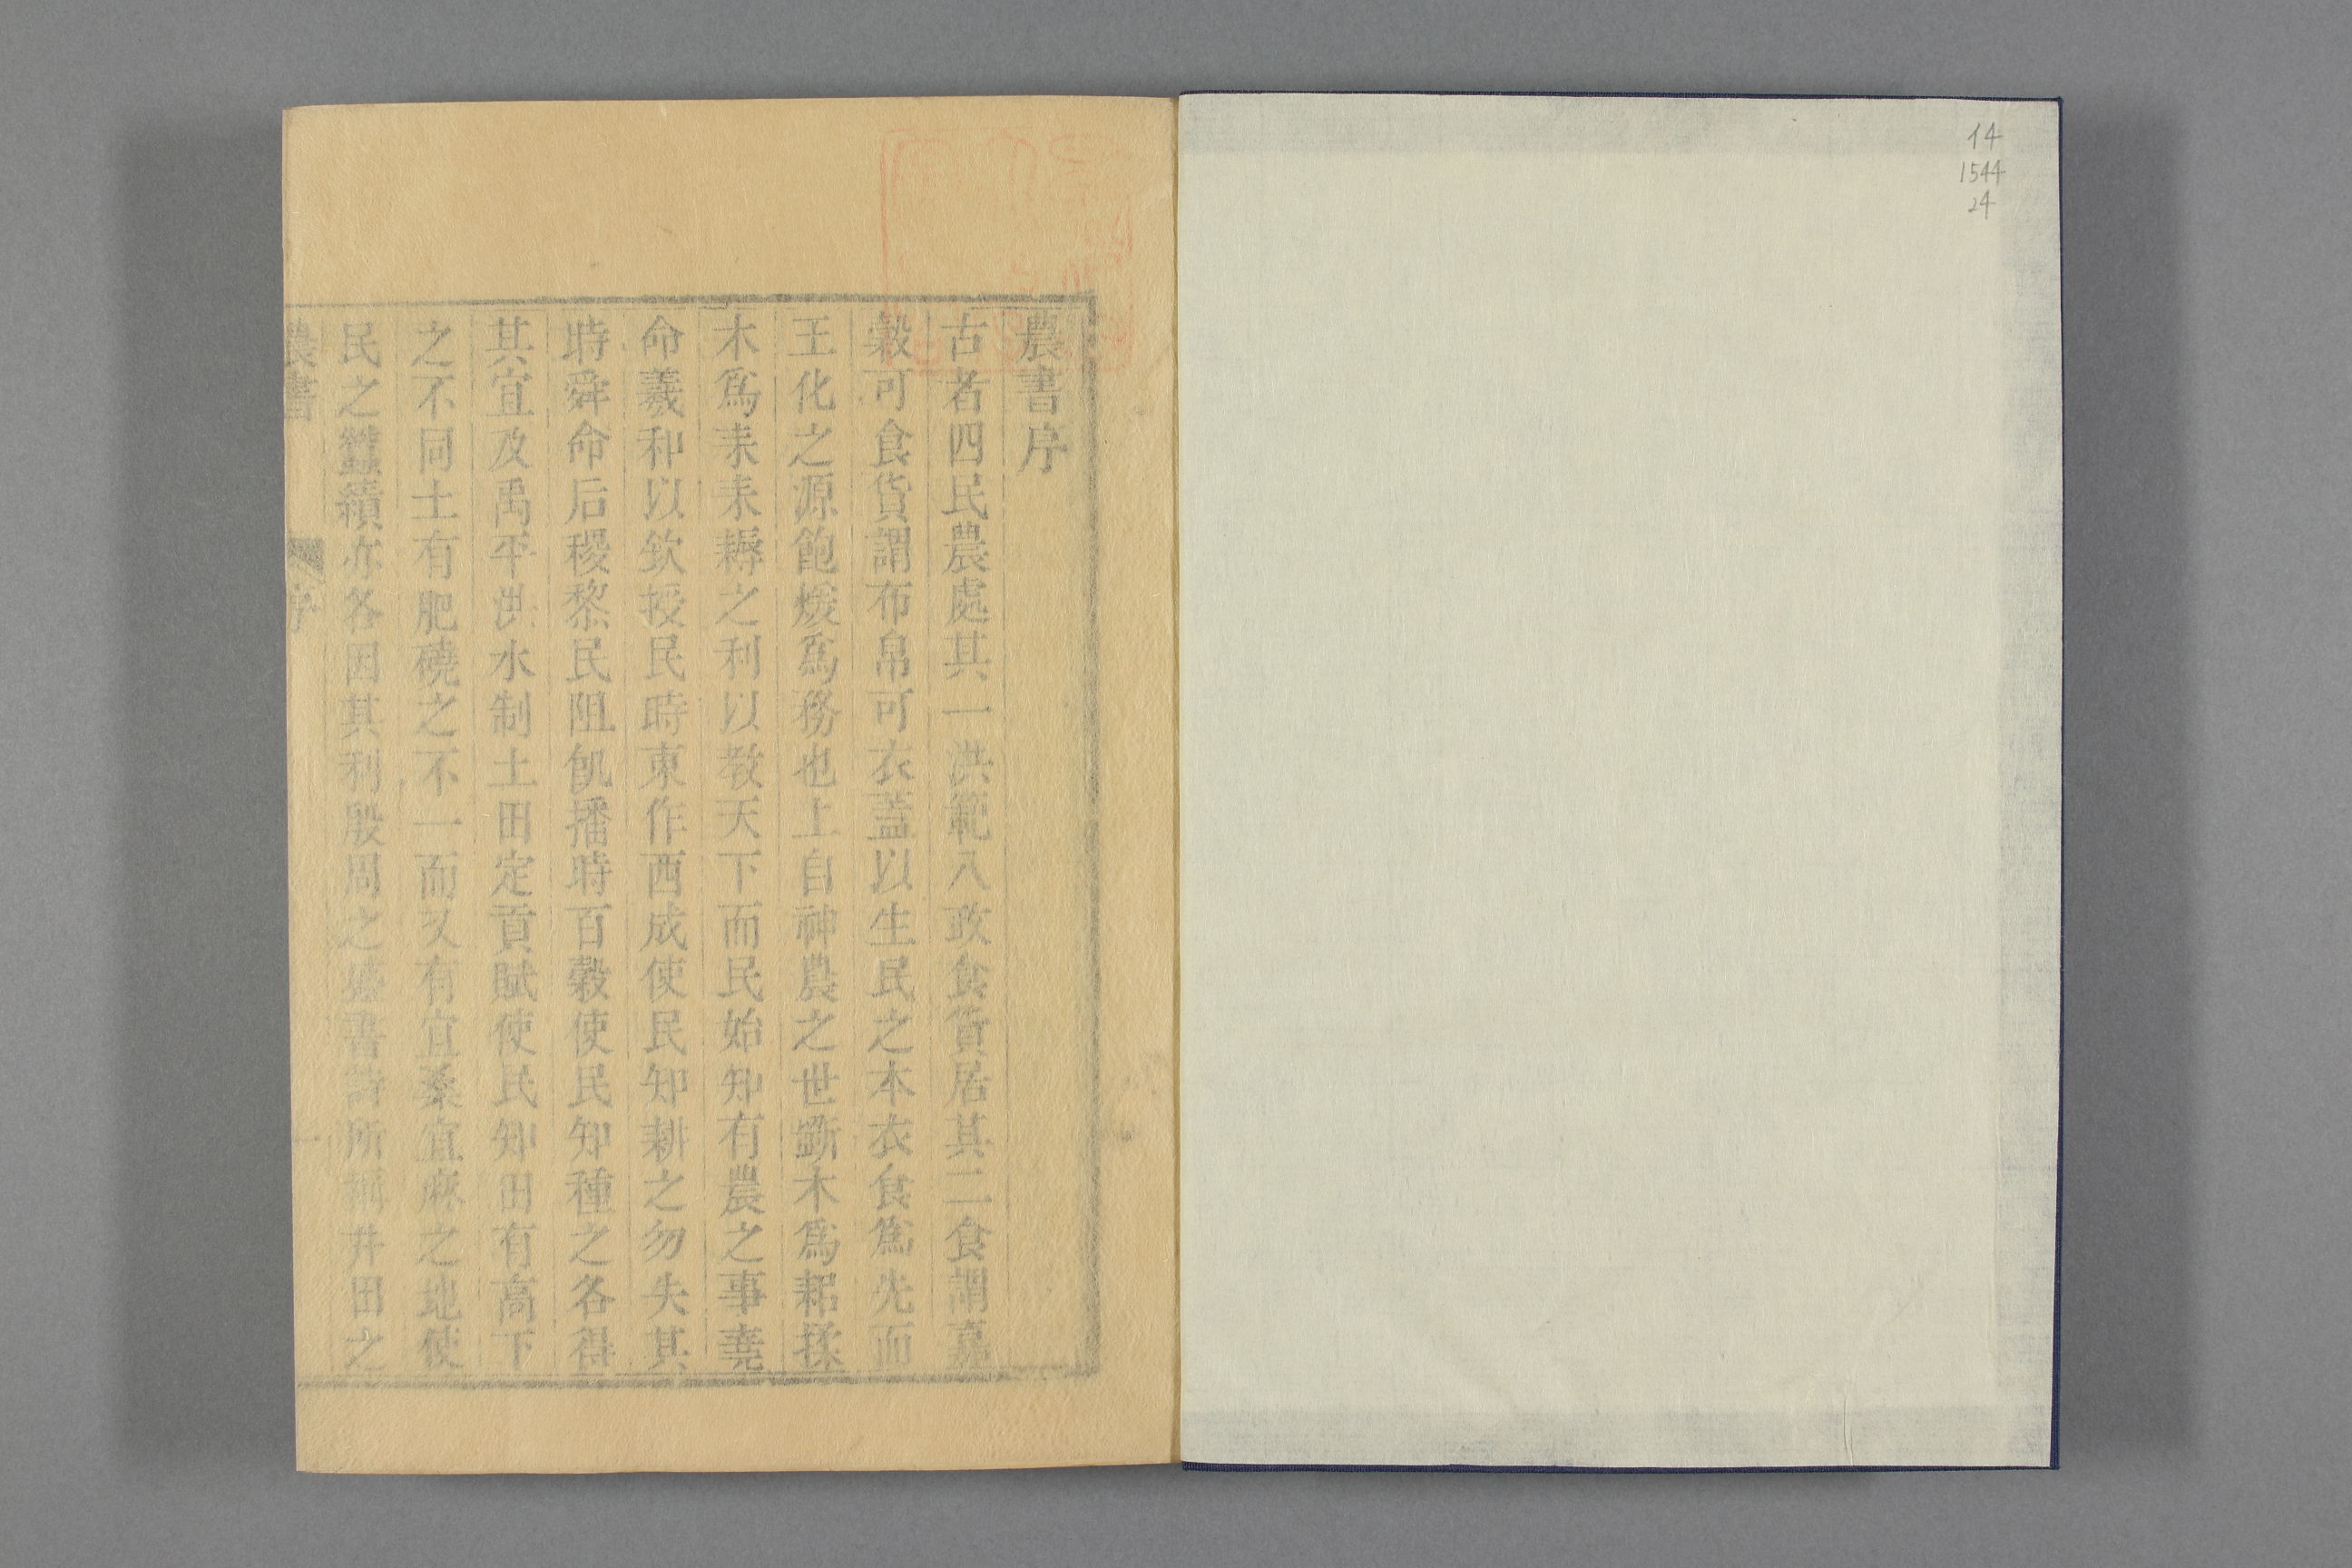 14
1544
24
農書序
古者四民農處其一洪範八政食貨居其二食謂嘉
穀可食貨謂布帛可衣蓋以生民之本衣食爲先而
王化之源飽煖爲務也上自神農之世斲木爲耜揉
木爲耒耒耨之利以教天下而民始知有農之事堯
命羲和以欽授民時東作西成使民知耕之勿失其
時舜命后稷黎民阻飢播時百穀使民知種之各得
其宜及禹平洪水制土田定貢賦使民知田有高下
之不同土有肥磽之不一而又有宜桑宜麻之地使
民之蠶績亦各因其利殷周之盛書詩所稱井田之
農書 序 一